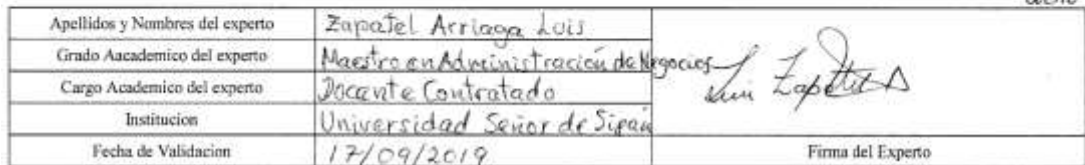 Apellidos y Nombres del experto Zapatel Arriaga Luis
Grado Aacademico del experto Maestro en Administración de Negocios
Cargo Academico del experto Docente Contratado
Luis Zapatel A
Institucion Universidad Señor de Sipan
Fecha de Validacion 17/09/2019 Firma del Experto